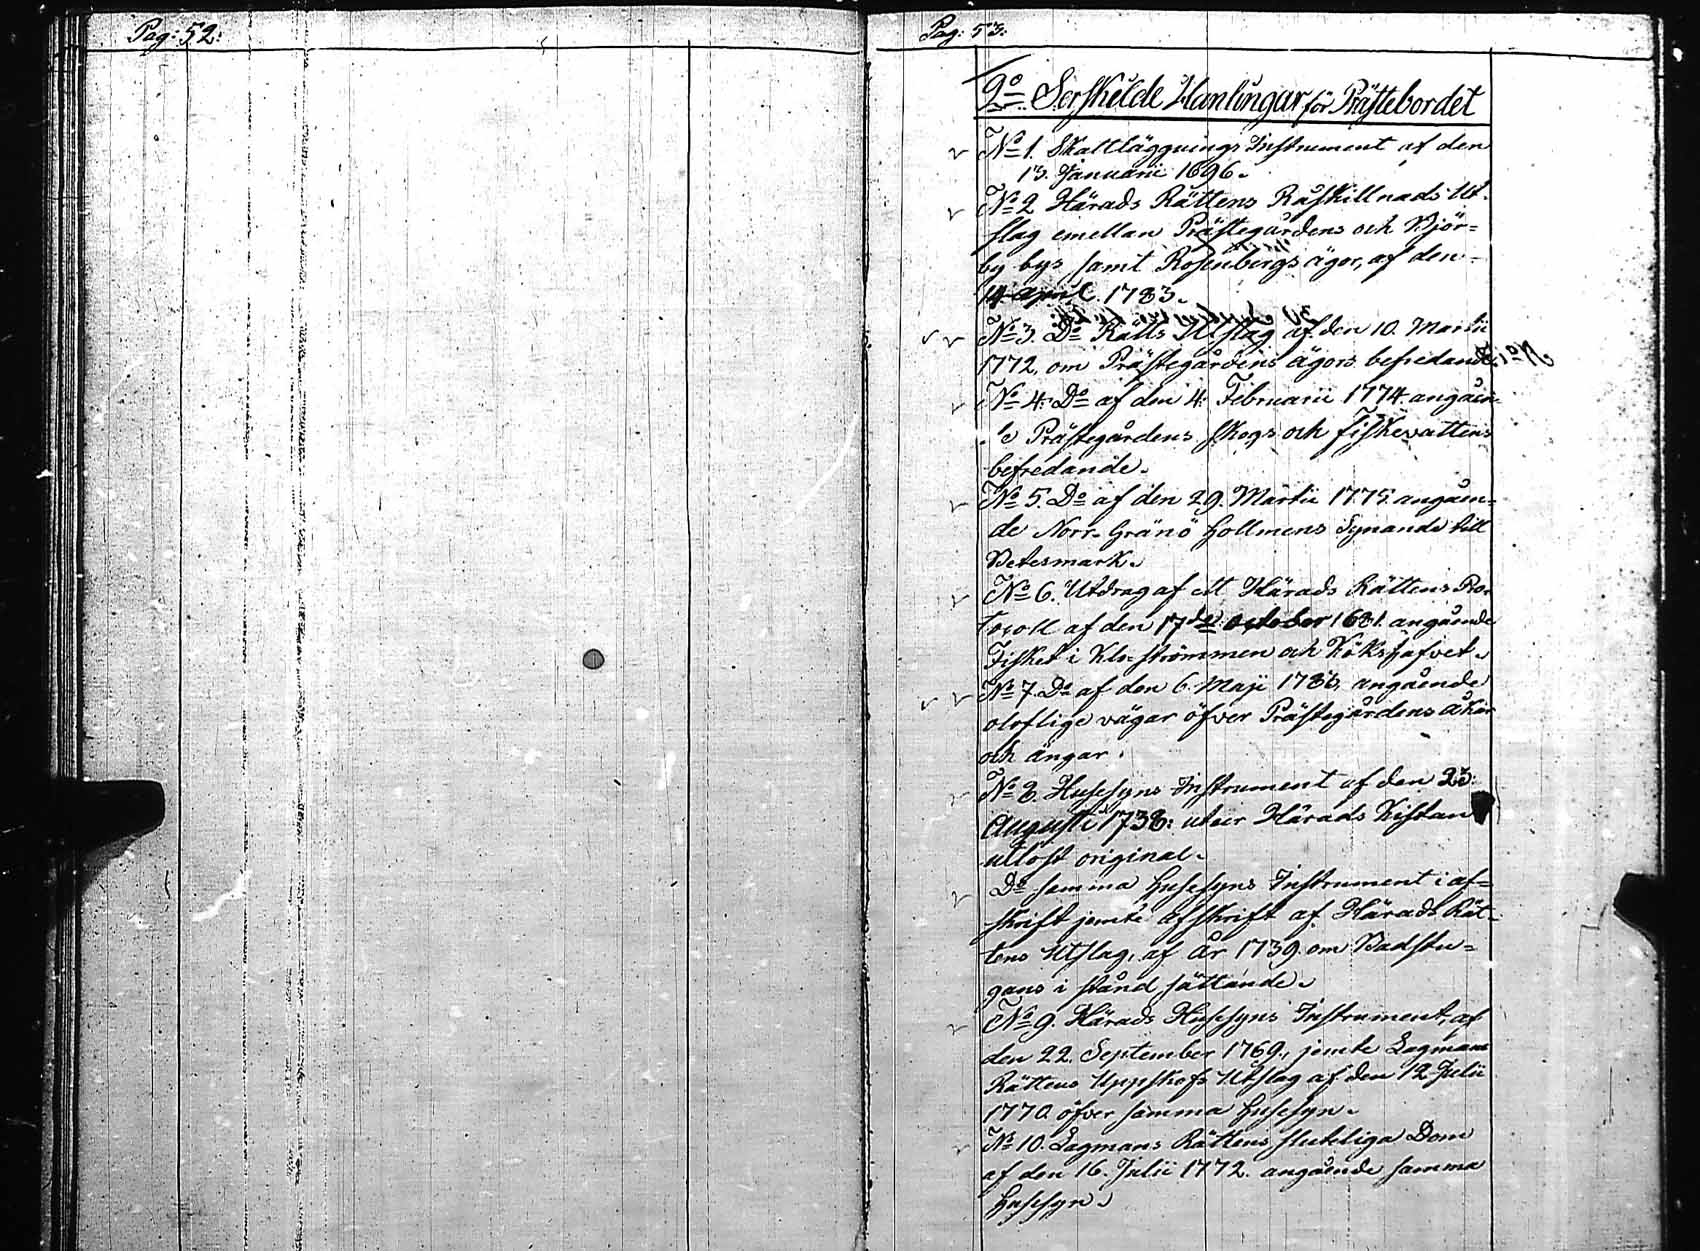 Pag: 52:
Pag: 53:
9o Serskilde Hanlingar för Prästebordet
No 1. Skattläggnings Instrument af den
13. Januarii 1696.
No 2 Härads Rättens Råskillnads Ut-
slag emellan Prästegårdens och Björ=
by bys samt Rosenbergs ägor, af den
14 April 1783.
No 3. Do Rätts Utslag af den 10. Martii
1772, om Prästegårdens ägors befredande
No 4: Do af den 4: Februarii 1774. angåen-
de Prästegårdens skogs och fiskevattens
befredande.
No 5. Do af den 29. Martii 1775. angåen=
de Norr-Gränö hollmens Synande till
Betesmark.
No 6. Utdrag af ett Härads Rättens Pro-
tocoll af den 17de october 1681. angående
Fisket i strömmen och Kökshafvet.
No 7. Do af den 6. Maji 1786, angående
oloflige vägar öfver Prästegårdens åker
och ängar.
No 8. Husesyns Instrument af den 23:
Augusti 1738: utur Härads Kistan
utlöst original.
Do samma husesyns Instrument i af=
skrift jemte afskrift af Härads Rät-
tens Utslag, af År 1739. om Badstu=
gans i stånd sättande.
No 9. Härads Husesyns Instrument, af
den 22. September 1769., jemte Lagmans
Rättens Uppskofs Utslag af den 12 Julii
1770. öfver samma husesyn.
No 10. Lagmans Rättens sluteliga Dom
af den 16. Julii 1772. angående samma
husesyn.